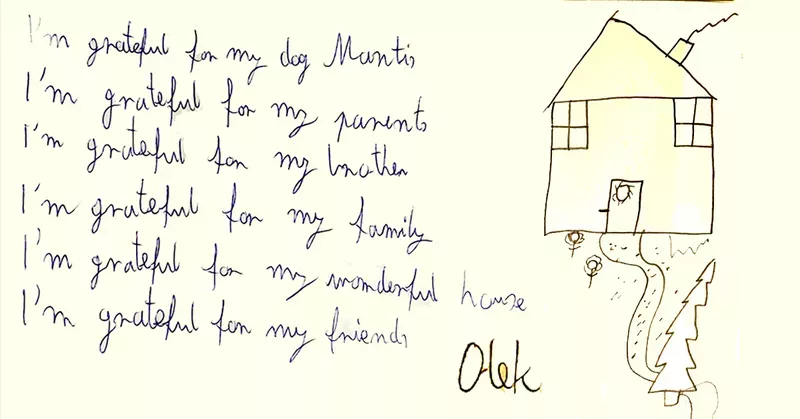 I'm grateful for my dog Mantis
I'm grateful for my parents
I'm grateful for my brother
I'm grateful for my family
I'm grateful for my wonderful house
I'm grateful for my friends
Olek